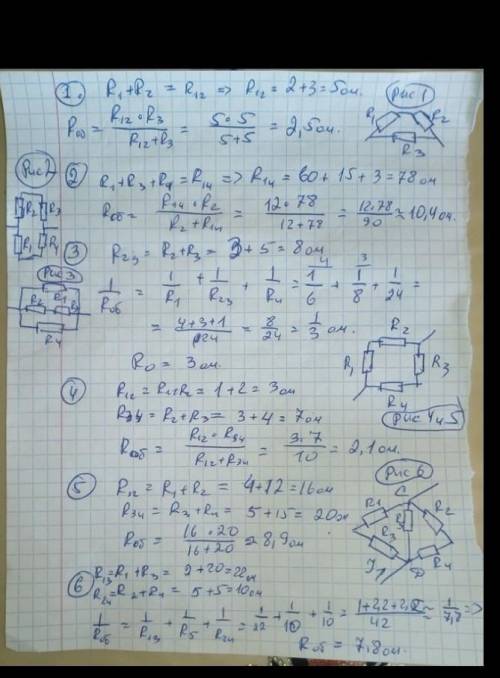 1. R₁ + R₂ = R₁₂ => R₁₂ = 2+3 = 5 ом.
Rоб = (R₁₂ · R₃)/(R₁₂ + R₃) = (5 · 5)/(5+5) = 2,5 ом.
Рис 1
R₁ R₂
R₃
Рис 2
R₂ R₃
R₁ R₄
2 R₁ + R₃ + R₄ = R₁₄ => R₁₄ = 60 + 15 + 3 = 78 ом
Rоб = (R₁₄ · R₂)/(R₂ + R₁₄) = (12 · 78)/(12 + 78) = (12 · 78)/90 ≈ 10,4 ом.
3 R₂₃ = R₂ + R₃ = 3 + 5 = 8 ом
Рис 3
R₁
R₂ R₃
R₄
1/Rоб = 1/R₁ + 1/R₂₃ + 1/R₄ = 1/6 + 1/8 + 1/24 =
= (4+3+1)/24 = 8/24 = 1/3 ом.
R₀ = 3 ом.
R₂
R₁ R₃
R₄
Рис 4 и 5
4 R₁₂ = R₁ + R₂ = 1 + 2 = 3 ом
R₃₄ = R₂ + R₃ = 3 + 4 = 7 ом
Rоб = (R₁₂ · R₃₄)/(R₁₂ + R₃₄) = (3 · 7)/10 = 2,1 ом.
5 R₁₂ = R₁ + R₂ = 4 + 12 = 16 ом
R₃₄ = R₃ + R₄ = 5 + 15 = 20 ом
Rоб = (16 · 20)/(16 + 20) ≈ 8,9 ом
Рис 6
C
R₁ R₂
R₃ R₄
D
6 R₁₃ = R₁ + R₃ = 2 + 20 = 22 ом
R₂₄ = R₂ + R₄ = 5 + 5 = 10 ом
1/Rоб = 1/R₁₃ + 1/R₅ + 1/R₂₄ = 1/22 + 1/10 + 1/10 = ≈ 1/7,8 =>
Rоб = 7,8 ом.